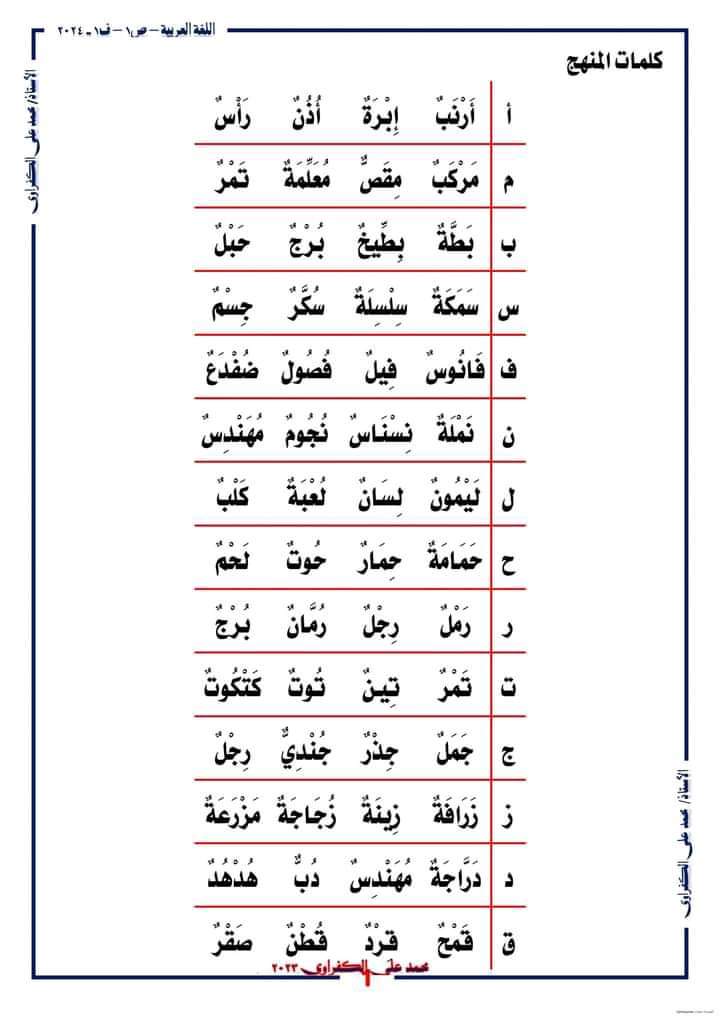 اللغة العربية – ص١ – ف١ ـ ٢٠٢٤
الأستاذ/ محمد على الكفراوى
كلمات المنهج
أ أَرْنَبٌ إِبْرَةٌ أُذُنٌ رَأْسٌ
م مَرْكَبٌ مِقَصٌّ مُعَلِّمَةٌ تَمْرٌ
ب بَطَّةٌ بِطِّيخٌ بُرْجٌ حَبْلٌ
س سَمَكَةٌ سِلْسِلَةٌ سُكَّرٌ جِسْمٌ
ف فَانُوسٌ فِيلٌ فُصُولٌ ضُفْدَعٌ
ن نَمْلَةٌ نِسْنَاسٌ نُجُومٌ مُهَنْدِسٌ
ل لَيْمُونٌ لِسَانٌ لُعْبَةٌ كَلْبٌ
ح حَمَامَةٌ حِمَارٌ حُوتٌ لَحْمٌ
ر رَمْلٌ رِجْلٌ رُمَّانٌ بُرْجٌ
ت تَمْرٌ تِينٌ تُوتٌ كَتْكُوتٌ
ج جَمَلٌ جِذْرٌ جُنْدِيٌّ رِجْلٌ
ز زَرَافَةٌ زِينَةٌ زُجَاجَةٌ مَزْرَعَةٌ
د دَرَّاجَةٌ مُهَنْدِسٌ دُبٌّ هُدْهُدٌ
ق قَمْحٌ قِرْدٌ قُطْنٌ صَقْرٌ
الأستاذ/ محمد على الكفراوى
محمد على الكفراوى ٢٠٢٣
١